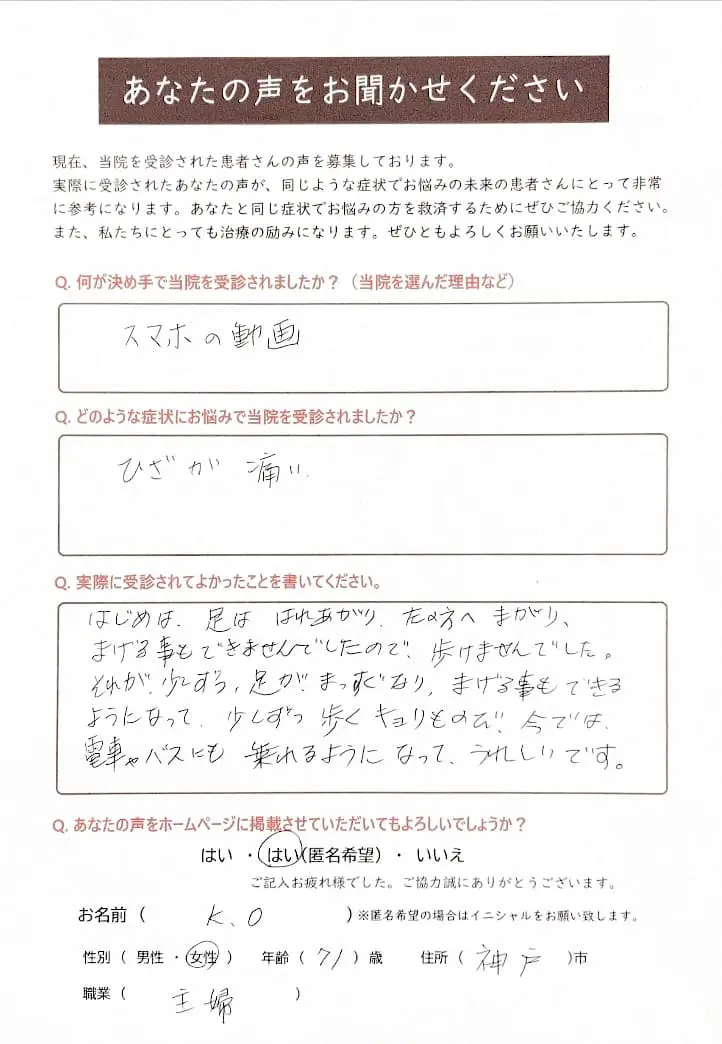 あなたの声をお聞かせください
現在、当院を受診された患者さんの声を募集しております。
実際に受診されたあなたの声が、同じような症状でお悩みの未来の患者さんにとって非常
に参考になります。あなたと同じ症状でお悩みの方を救済するためにぜひご協力ください。
また、私たちにとっても治療の励みになります。ぜひともよろしくお願いいたします。
Q. 何が決め手で当院を受診されましたか？（当院を選んだ理由など）
スマホの動画
Q. どのような症状にお悩みで当院を受診されましたか？
ひざが痛い.
Q. 実際に受診されてよかったことを書いてください。
はじめは、足は はれあがり、 方へ まがり、
まげる事もできませんでしたので、歩けませんでした。
それが、少しずつ、足が、まっすぐなり、まげる事もできる
ようになって、少しずつ 歩く キョリものび、今では、
電車やバスにも 乗れるように なって、うれしいです。
Q. あなたの声をホームページに掲載させていただいてもよろしいでしょうか？
はい ・ はい(匿名希望) ・ いいえ
ご記入お疲れ様でした。ご協力誠にありがとうございます。
お名前 ( K.O ) ※匿名希望の場合はイニシャルをお願い致します。
性別 ( 男性 ・ 女性 ) 年齢 ( 71 ) 歳 住所 ( 神戸 )市
職業 ( 主婦 )